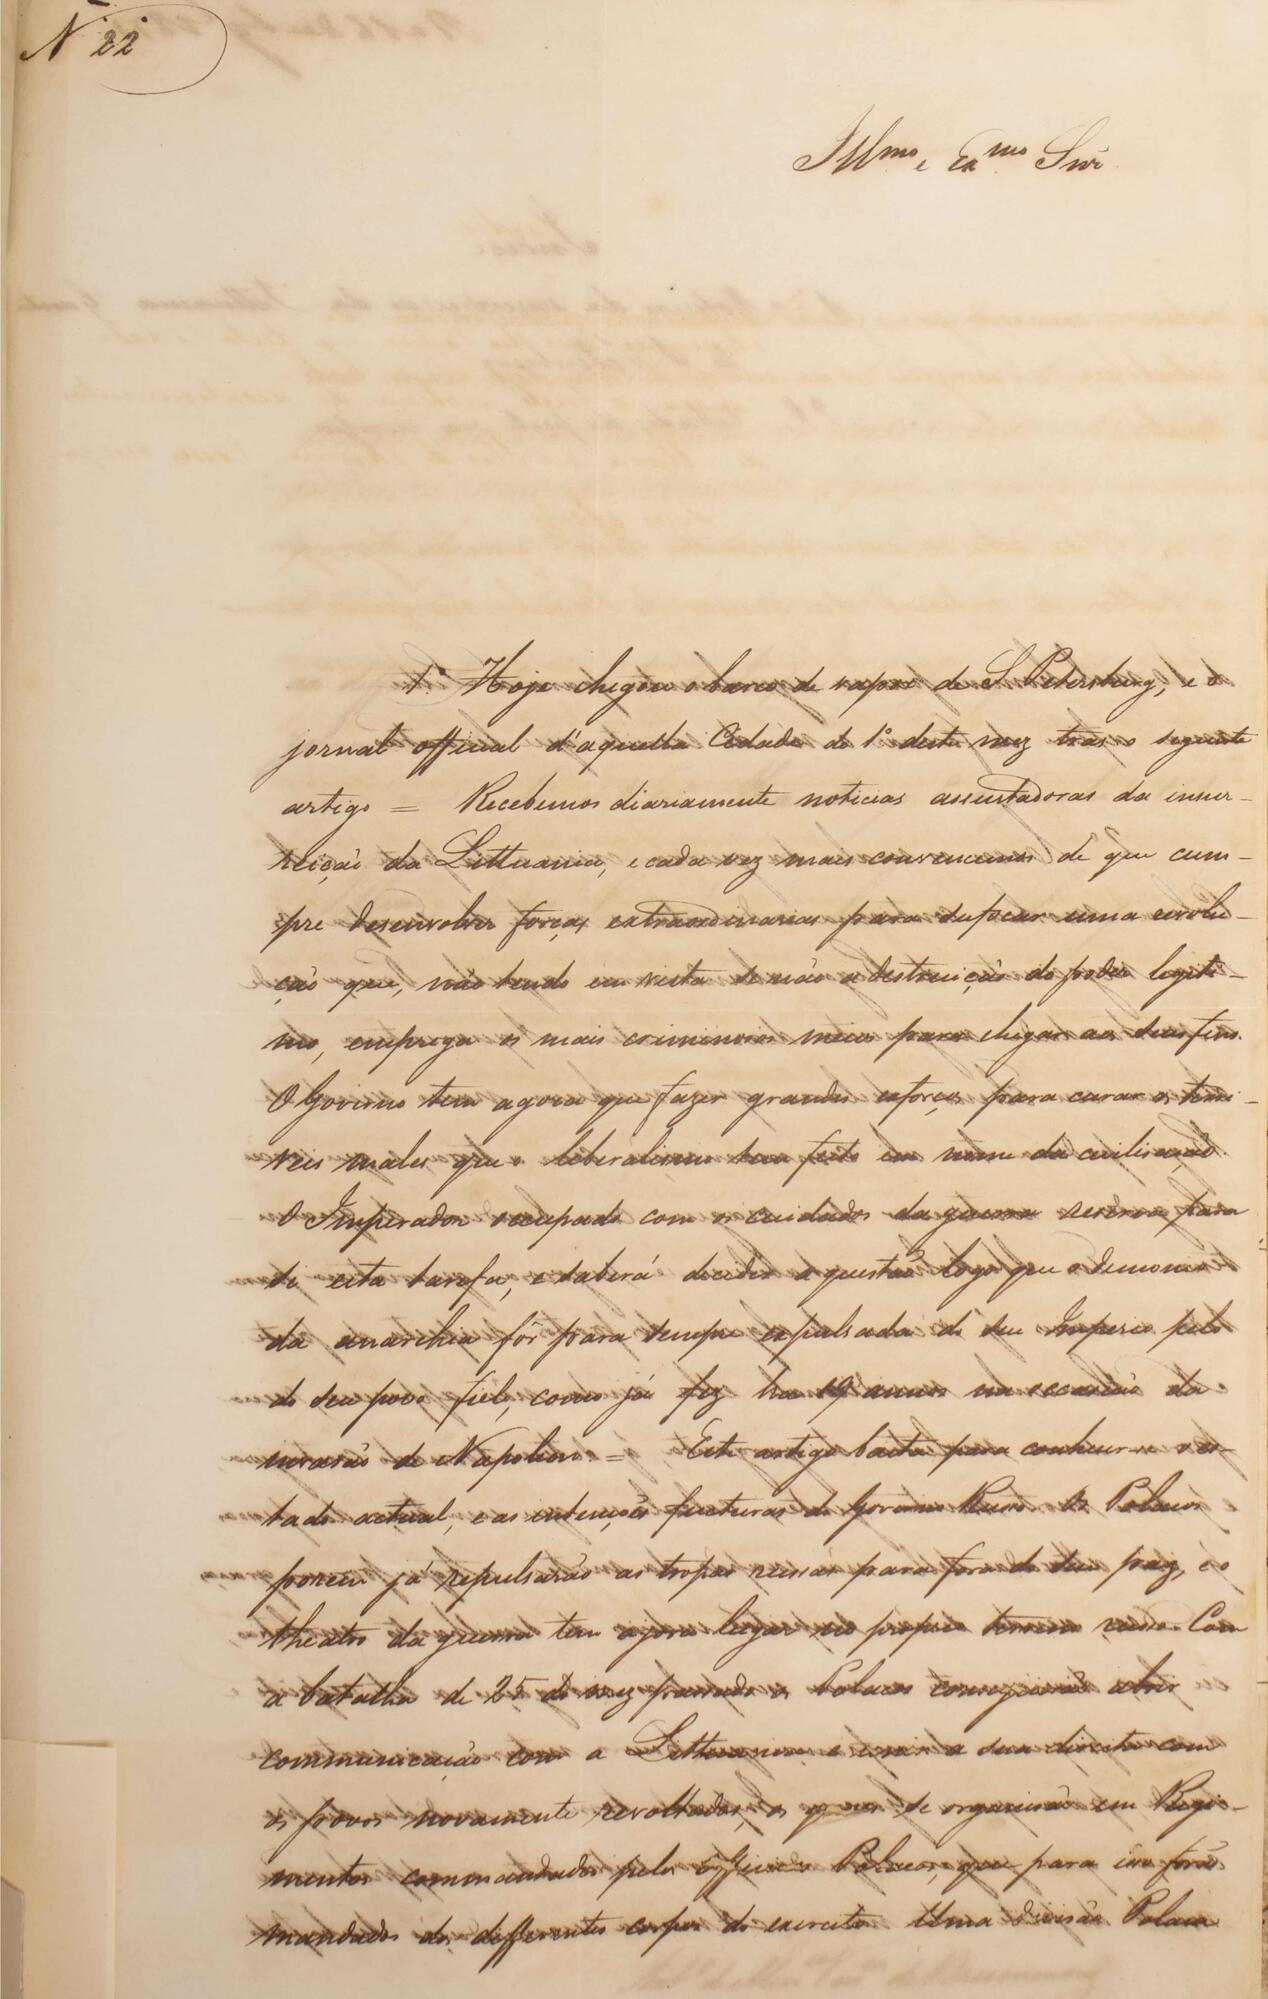 N 22
Illmo e Exmo Snr
1º Hoje chegou o barco de vapor de S Petersburg, e o
jornal official d'aquella Cidade de 1º deste mez tras o seguinte
artigo = Recebemos diariamente noticias assustadoras da insur-
reição da Lithuania, e cada vez mais convencemos de que cum-
pre desenvolver forças extraordinarias para sufocar uma revolu-
ção que, não tendo em vista senão a destruição do poder legiti-
mo, emprega os mais criminosos meios para chegar aos seus fins.
O Governo tem agora que fazer grandes esforços para curar os terri-
veis males que o liberalismo tem feito em nome da civilisação.
O Imperador occupado com os cuidados da guerra reserva para
si esta tarefa, e saberá decidir a questão logo que o demonio
da anarchia fôr para sempre expulsado do seu Imperio pelo
do seu povo fiel, como já fez ha 19 annos na occasião da
invasão de Napoleão = Este artigo basta para conhecer-se o es-
tado actual, e as intenções futuras do Governo Russo. Os Polacos
porem já repulsarão as tropas russas para fora do seu paiz, e o
theatro da guerra tem agora lugar no proprio terreno russo. Com
a batalha de 25 do mez passado os Polacos conseguirão abrir
communicação com a Lithuania, e unir a sua direita com
os povos novamente revoltados, os quaes se organisão em Regi-
mentos commandados pelos officiaes Polacos, que para isso forão
mandados dos differentes corpos do exercito. Uma divisão Polaca